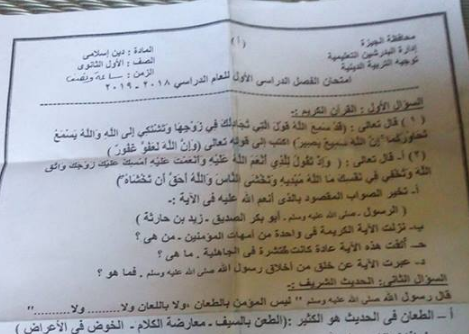 محافظة الجيزة
إدارة البدرشين التعليمية
توجيه التربية الدينية
(أ)
المادة : دين إسلامى
الصف : الأول الثانوى
الزمن : ساعة ونصف
امتحان الفصل الدراسى الأول للعام الدراسي ٢٠١٨ - ٢٠١٩
السؤال الأول : القرآن الكريم :-
(١) قال تعالى : (قَدْ سَمِعَ اللَّهُ قَوْلَ الَّتِي تُجَادِلُكَ فِي زَوْجِهَا وَتَشْتَكِي إِلَى اللَّهِ وَاللَّهُ يَسْمَعُ
تَحَاوُرَكُمَا إِنَّ اللَّهَ سَمِيعٌ بَصِيرٌ) اكتب إلى قوله تعالى (وَإِنَّ اللَّهَ لَعَفُوٌّ غَفُورٌ)
(٢) أ- قال تعالى : (وَإِذْ تَقُولُ لِلَّذِي أَنْعَمَ اللَّهُ عَلَيْهِ وَأَنْعَمْتَ عَلَيْهِ أَمْسِكْ عَلَيْكَ زَوْجَكَ وَاتَّقِ
اللَّهَ وَتُخْفِي فِي نَفْسِكَ مَا اللَّهُ مُبْدِيهِ وَتَخْشَى النَّاسَ وَاللَّهُ أَحَقُّ أَن تَخْشَاهُ")
أ- تخير الصواب المقصود بالذى أنعم الله عليه فى الآية :-
( الرسول - صلى الله عليه وسلم - أبو بكر الصديق - زيد بن حارثة )
ب- نزلت الآية الكريمة فى واحدة من أمهات المؤمنين - من هى ؟
جـ- ألغت هذه الآية عادة كانت منتشرة فى الجاهلية - ما هى ؟
د- عبرت الآية عن خلق من أخلاق رسول الله صلى الله عليه وسلم - فما هو ؟
السؤال الثانى : الحديث الشريف :-
قال رسول الله صلى الله عليه وسلم " ليس المؤمن بالطعان ،ولا باللعان ولا ........ ولا ........ "
أ – الطعان فى الحديث هو الكثير :(الطعن بالسيف - معارضة الكلام - الخوض في الأعراض )